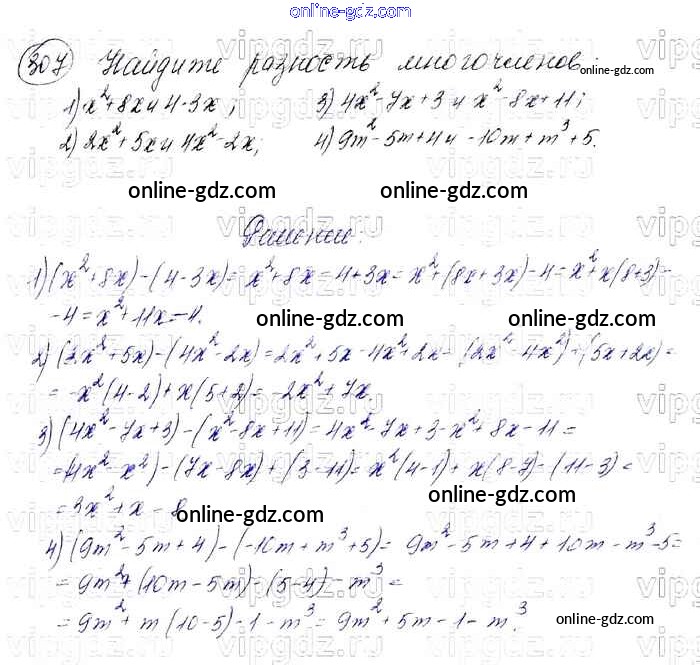 online-gdz.com
307 Найдите разность многочленов
online-gdz.com
1) x²+8x и 4-3x; 3) 4x²-7x+3 и x²-8x+11;
2) 2x²+5x и 4x²-2x; 4) 9m²-5m+4 и -10m+m³+5.
online-gdz.com online-gdz.com
Решение:
1) (x²+8x)-(4-3x)= x²+8x=4+3x= x²+(8x+3x)-4= x²+x(8+3)-
-4= x²+11x-4.
online-gdz.com online-gdz.com
2) (2x²+5x)-(4x²-2x)=2x²+5x-4x²+2x= (2x²-4x²)+(5x+2x)=
= -x²(4-2)+x(5+2)= -2x²+7x.
3) (4x²-7x+3)-(x²-8x+11)=4x²-7x+3-x²+8x-11=
=(4x²-x²)-(7x-8x)+(3-11)= x²(4-1)+x(8-7)-(11-3)=
=3x²+x-8
online-gdz.com online-gdz.com
4) (9m²-5m+4)-(-10m+m³+5)= 9m²-5m+4+10m-m³-5=
=9m²+(10m-5m)-(5-4)-m³=
=9m²+m(10-5)-1-m³= 9m²+5m-1-m³.
online-gdz.com